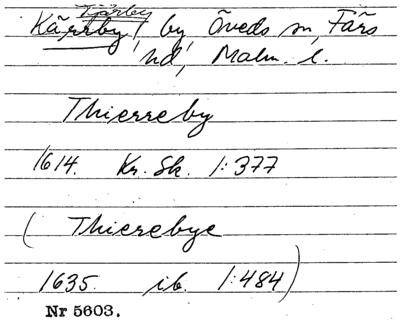 Tjärby
Kärrby, by, Öveds sn, Färs
hd, Malm. l.
Thierreby
1614. Kr. Sk. 1:377
( Thierebye
1635. ib. 1:484)
Nr 5603.